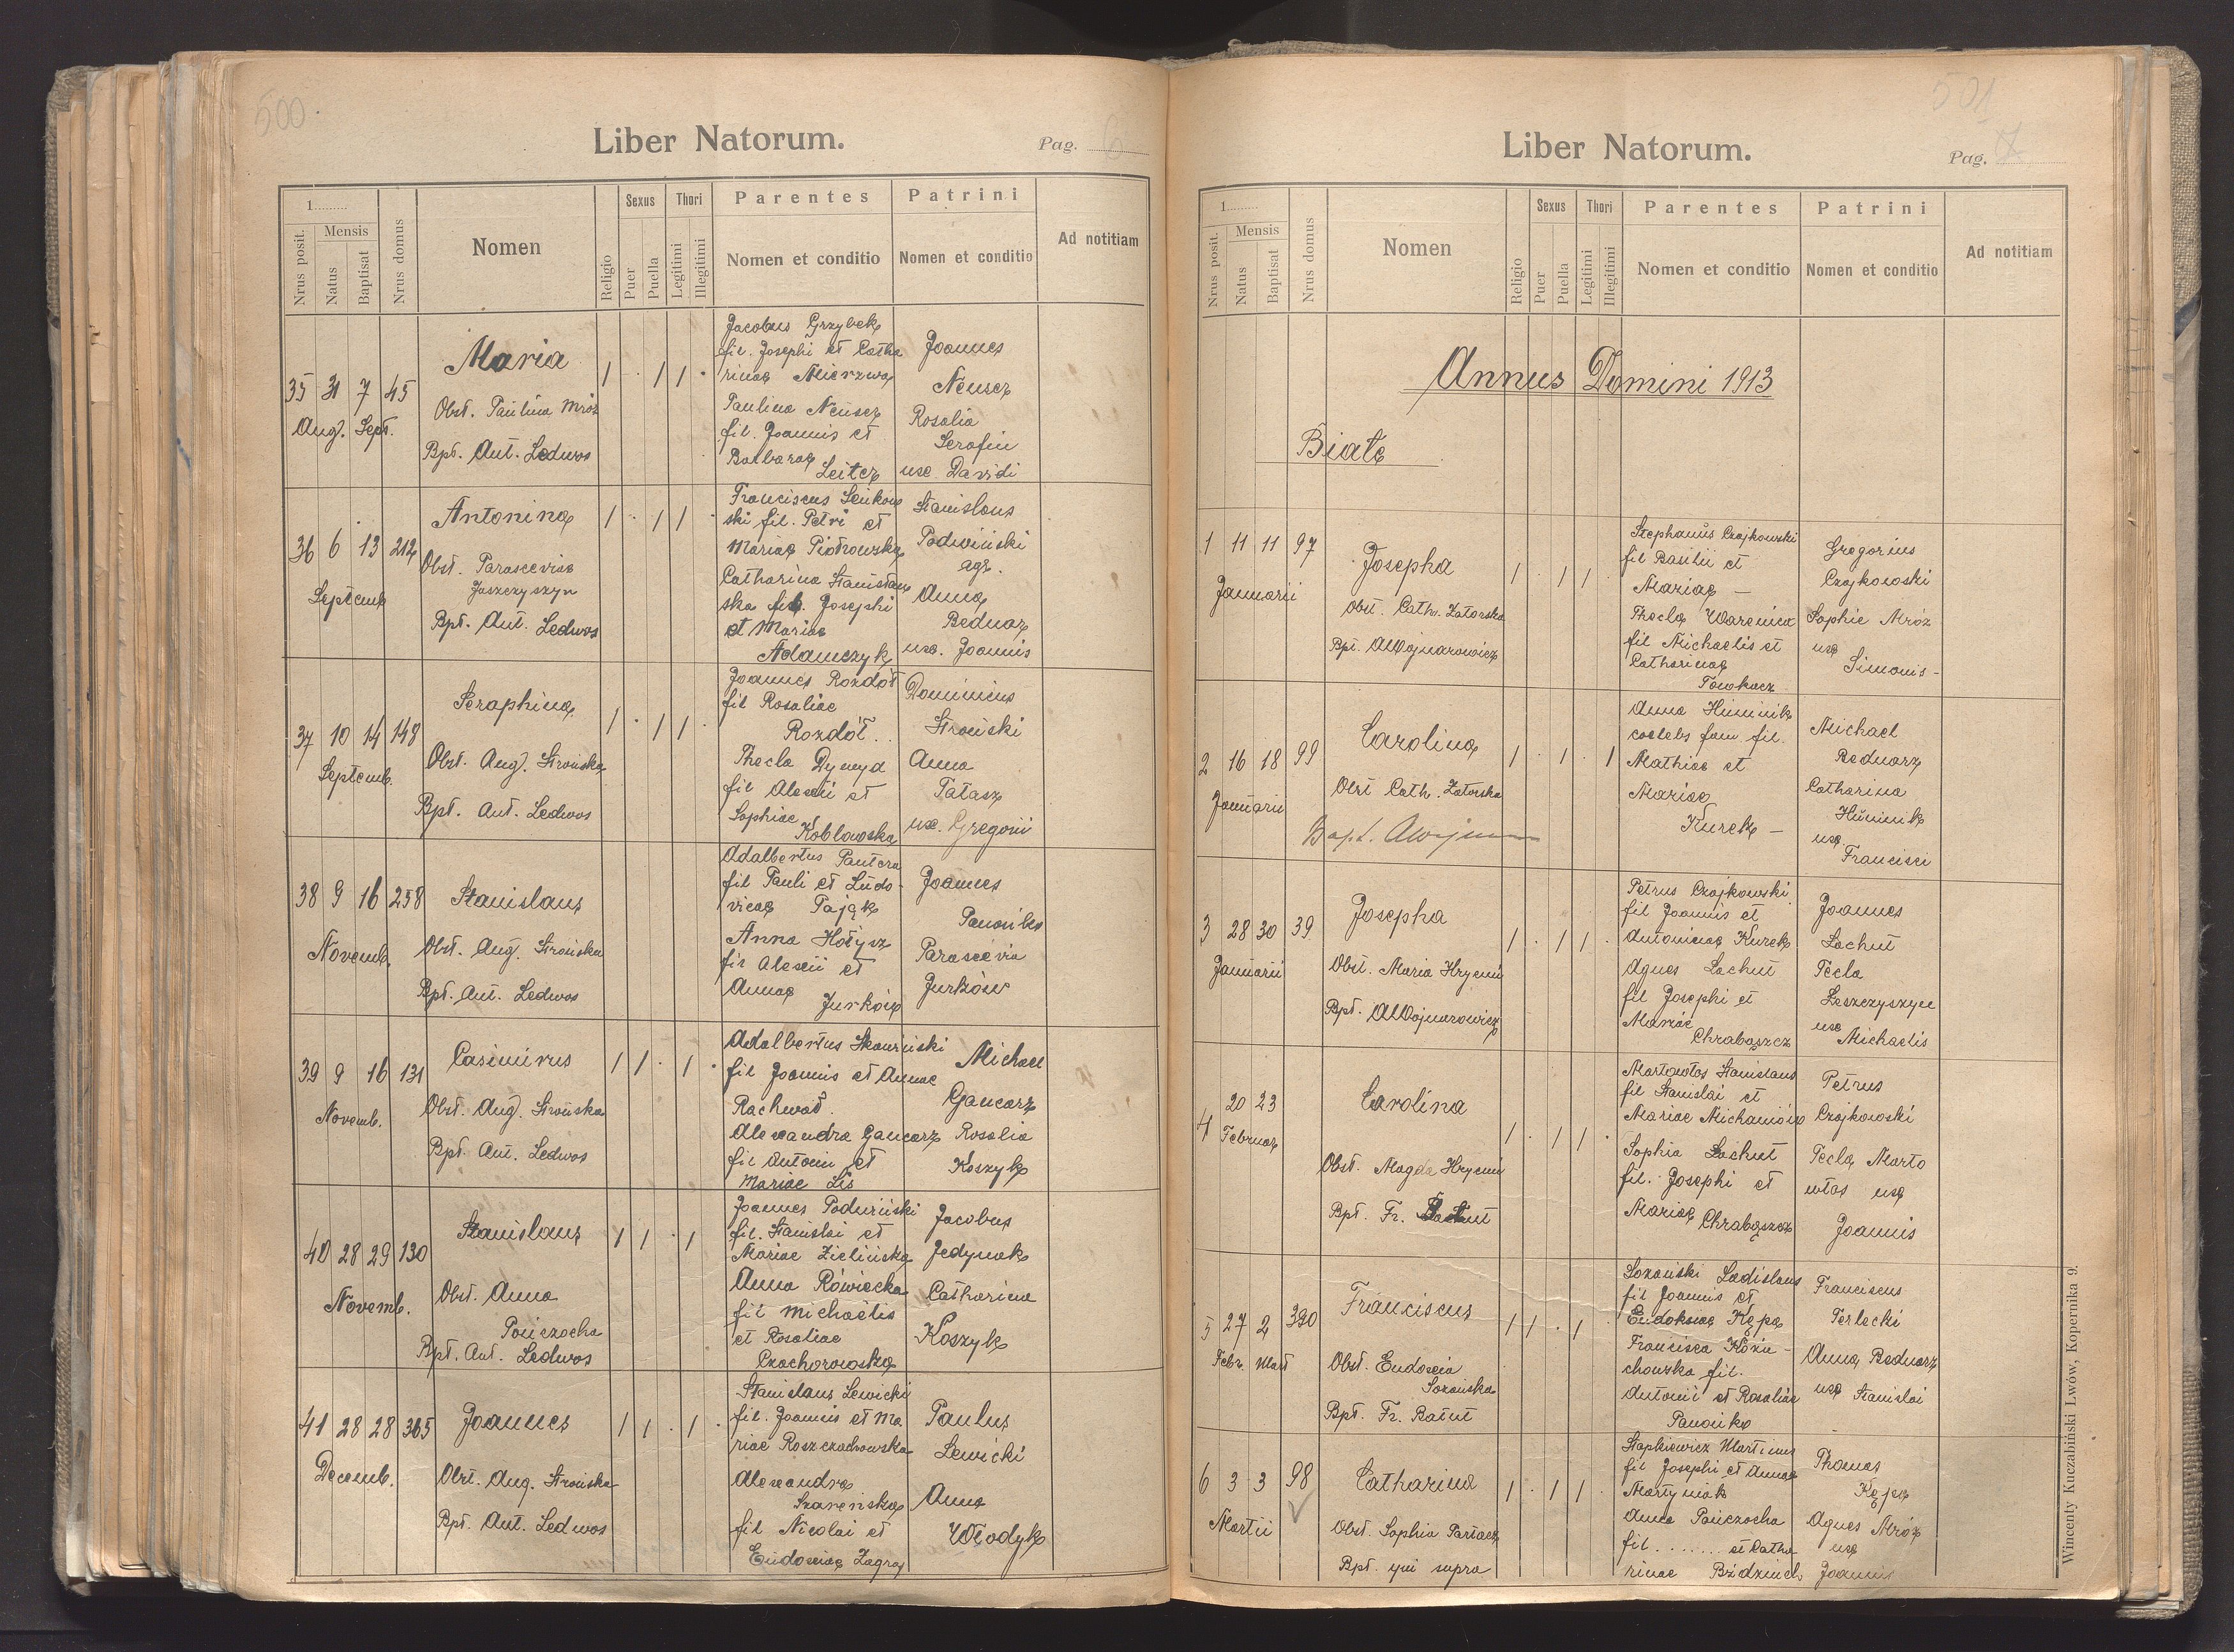 500
Liber Natorum.
Pag. 6
1.........
Mensis
Nrus posit.
Natus
Baptisat
Nrus domus
Nomen
Religio
Sexus
Puer
Puella
Thori
Legitimi
Illegitimi
Parentes
Nomen et conditio
Patrini
Nomen et conditio
Ad notitiam
35 31 7 45
Aug. Sept.
Maria
Obst. Paulina Mróz
Bpt. Ant. Ledwos
1 . 1 1 .
Jacobus Grzybek
fil. Josephi et Catha
rinae Mierzwa
Paulina Neuser
fil. Joannis et
Barbarae
Leiter
Joannes
Neuser
Rosalia
Serafin
ux. Davidi
36 6 13 212
Septemb
Antonina
Obst. Parascevia
Jaszczyszyn
Bpt. Ant. Ledwos
1 . 1 1 .
Franciscus Senkow
ski fil. Petri et
Mariae Piotrowska
Catharina Stanisław
ska fil. Josephi
et Mariae
Adamczyk
Stanislaus
Podwiński
agr.
Anna
Bednarz
ux. Joannis
37 10 14 148
Septemb.
Seraphina
Obst. Aug. Strońska
Bpt. Ant. Ledwos
1 . 1 1 .
Joannes Rozdół
fil Rosaliae
Rozdół.
Thecla Dymyd
fil Alexii et
Sophiae
Koblowska
Dominicus
Stroński
Anna
Tatasz
ux. Gregorii
38 9 16 258
Novemb.
Stanislaus
Obst. Aug. Strońska
Bpt. Ant. Ledwos
Adalbertus Pantera
fil Pauli et Ludo-
vicae Pająk
Anna Hołysz
fil Alexii et
Annae
Jurków
Joannes
Panońko
Parascevia
Jurków
39 9 16 131
Novemb.
Casimirus
Obst. Aug. Strońska
Bpt. Ant. Ledwos
1 1 . 1 .
Adalbertus Skowroński
fil Joannis et Annae
Rachwał.
Alexandra Gancarz
fil Antonii et
Mariae Lis
Michael
Gancarz
Rosalia
Koszyk
40 28 29 130
Novemb.
Stanislaus
Obst. Anna
Pończocha
Bpt. Ant. Ledwos
1 1 . 1
Joannes Podwiński
fil. Stanislai et
Mariae Zielińska
Anna Rówiecka
fil Michaëlis
et Rosaliae
Czachorowska
Jacobus
Jedynak
Catharina
Koszyk
41 28 28 365
Decemb.
Joannes
Obst. Aug. Strońska
Bpt. Ant. Ledwos
1 1 . 1 .
Stanislaus Lewicki
fil. Joannis et Ma
riae Roszczachowska
Alexandra
Szareńska
fil Nicolai et
Eudoxiae Zagraj
Paulus
Lewicki
Anna
Włodyk
501
Liber Natorum.
Pag. 7
1.........
Mensis
Nrus posit.
Natus
Baptisat
Nrus domus
Nomen
Religio
Sexus
Puer
Puella
Thori
Legitimi
Illegitimi
Parentes
Nomen et conditio
Patrini
Nomen et conditio
Ad notitiam
Annus Domini 1913
Białe
1 11 11 97
Januarii
Josepha
Obst. Cath. Zatorska
Bpt. AWojnarowicz
1 . 1 1
Stephanus Czajkowski
fil Basilii et
Mariae —
Thecla Warenica
fil Michaelis et
Catharinae
Towkacz
Gregorius
Czajkowski
Sophie Mróz
ux
Simonis -
2 16 18 99
Januarii
Carolina
Obst Cath. Zatorska
1 . 1 . 1
Anna Huminik
coelebs fam. fil.
Mathiae et
Mariae
Kurek —
Michael
Bednarz
Catharina
Huminik
ux.
Francisci
3 28 30 39
Januarii
Josepha
Obst. Maria Hryciu
Bpt. AWojnarowicz
1 . 1 1 .
Petrus Czajkowski
fil Joannis et
Antoninae Kurek
Agnes Lachut
fil Josephi et
Mariae
Chrabąszcz
Joannes
Lachut
Tecla
Leszczyszyn
ux
Michaelis
4 20 23
Februar
Carolina
Obst. Magda Hryciu
Bpt. Fr.
1 . 1 1 .
Martowłos Stanislaus
fil Stanislai et
Mariae Michaniów
Sophia Lachut
fil. Josephi et
Mariae
Chrabąszcz
Petrus
Czajkowski
Tecla Marto
włos ux
Joannis
5 27 2 390
Febr. Mart
Franciscus
Obst. Eudoxia
Sozańska
Bpt. Fr. Batut
1 1 . 1 .
Sozański Ladislaus
fil Joannis et
Eudoksiae Kępa
Francisca Kożu-
chowska fil.
Antonii et Rosaliae
Panońko
Franciscus
Terlecki
Anna Bednarz
ux Stanislai
6 3 3 98
Martii
Catharina
Obst. Sophia Parłacz
Bpt. qui supra
1 . 1 1 .
Stapkiewicz Martinus
fil Josephi et Annae
Martyniak
Anna Pończocha
fil....... et Catha
rinae Bździuch
Thomas
Kępa
Agnes Mróz
ux
Joannis
Wincenty Kuczabiński Lwów, Kopernika 9.